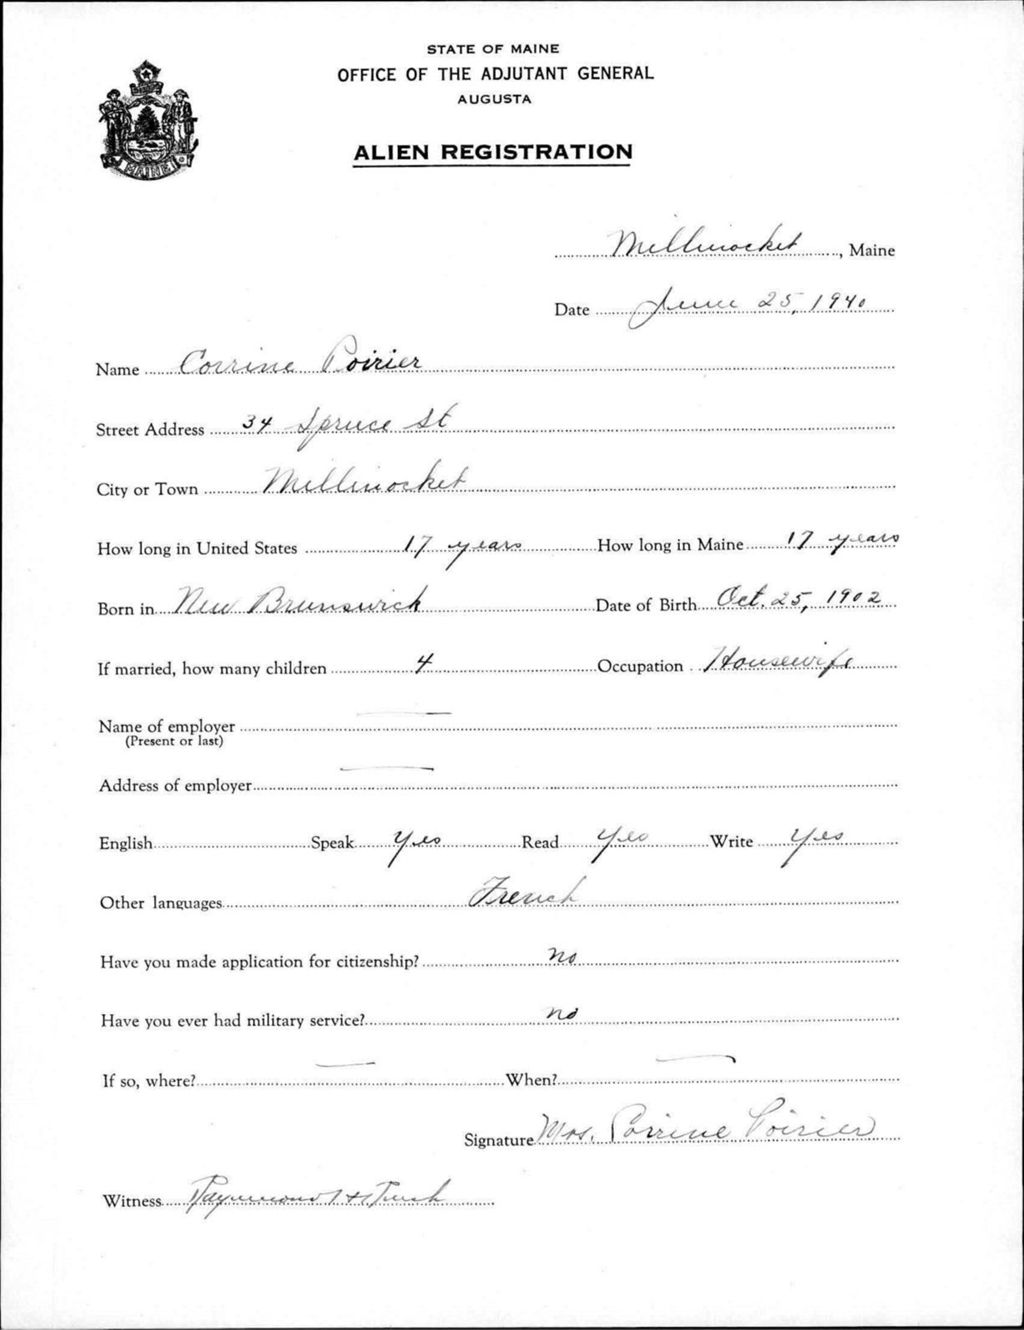 STATE OF MAINE
OFFICE OF THE ADJUTANT GENERAL
AUGUSTA
ALIEN REGISTRATION
MAINE
Millinocket, Maine
Date June 25, 1940
Name Corrine Poirier
Street Address 34 Spruce St
City or Town Millinocket
How long in United States 17 years How long in Maine 17 years
Born in New Brunswick Date of Birth Oct. 25, 1902
If married, how many children 4 Occupation Housewife
Name of employer —
(Present or last)
Address of employer —
English Speak Yes Read Yes Write Yes
Other languages French
Have you made application for citizenship? No
Have you ever had military service? No
If so, where? — When? —
Signature Mrs. Corrine Poirier
Witness Raymond H.